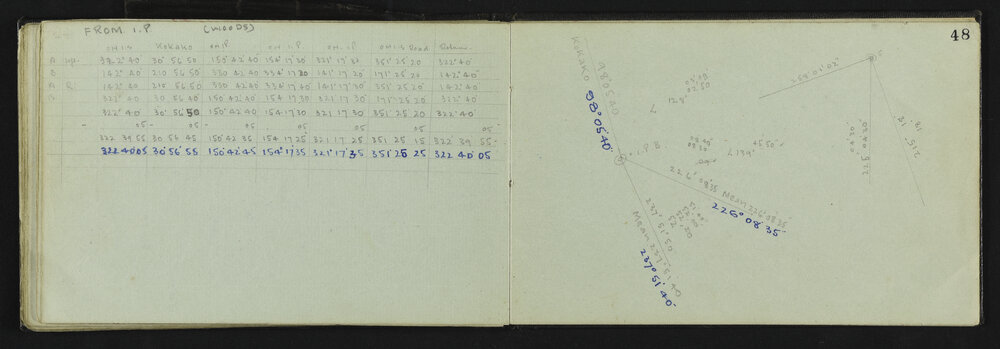 FROM I.P (WOODS)
OM I.S KOKAKO OM I.P OM I.P OM I.P OM I.S Road Return
A up. 322° 40' 30° 56 50 150° 42 40 154° 17 30 321° 17 351 25 20 322° 40'
B 142° 40' 210 56 50 330 42 40 334° 17 20 141° 17 20 171° 25 20 142° 40'
A R. 142° 40' 210 56 50 330 42 40 334 17 40 141° 17 30 171 25 20 142° 40'
B 322° 40' 30 56 40 150 42 40 154 17 30 321 17 30 171 25 20 322° 40'
322° 40' 30° 56' 50 150° 42 40 154 17 30 321 17 30 351 25 20 322° 40'
05 05 05 05 05 05
322 39 55 30 56 45 150° 42 35 154 17 25 321 17 25 351 25 15 322 39 55
322 40 05 30° 56' 55 150° 42' 45 154° 17' 35 321° 17' 35 351° 25 25 322 40 05
48
KOKAKO
98° 05 40
98° 05' 40"
259 01 02
128°
225 04 30
04 30
215 18 18
I.P B
226° 08 35 Mean 226 08 35
226° 08' 35"
237° 51' 50
Mean 237 51 40
237° 51' 40"